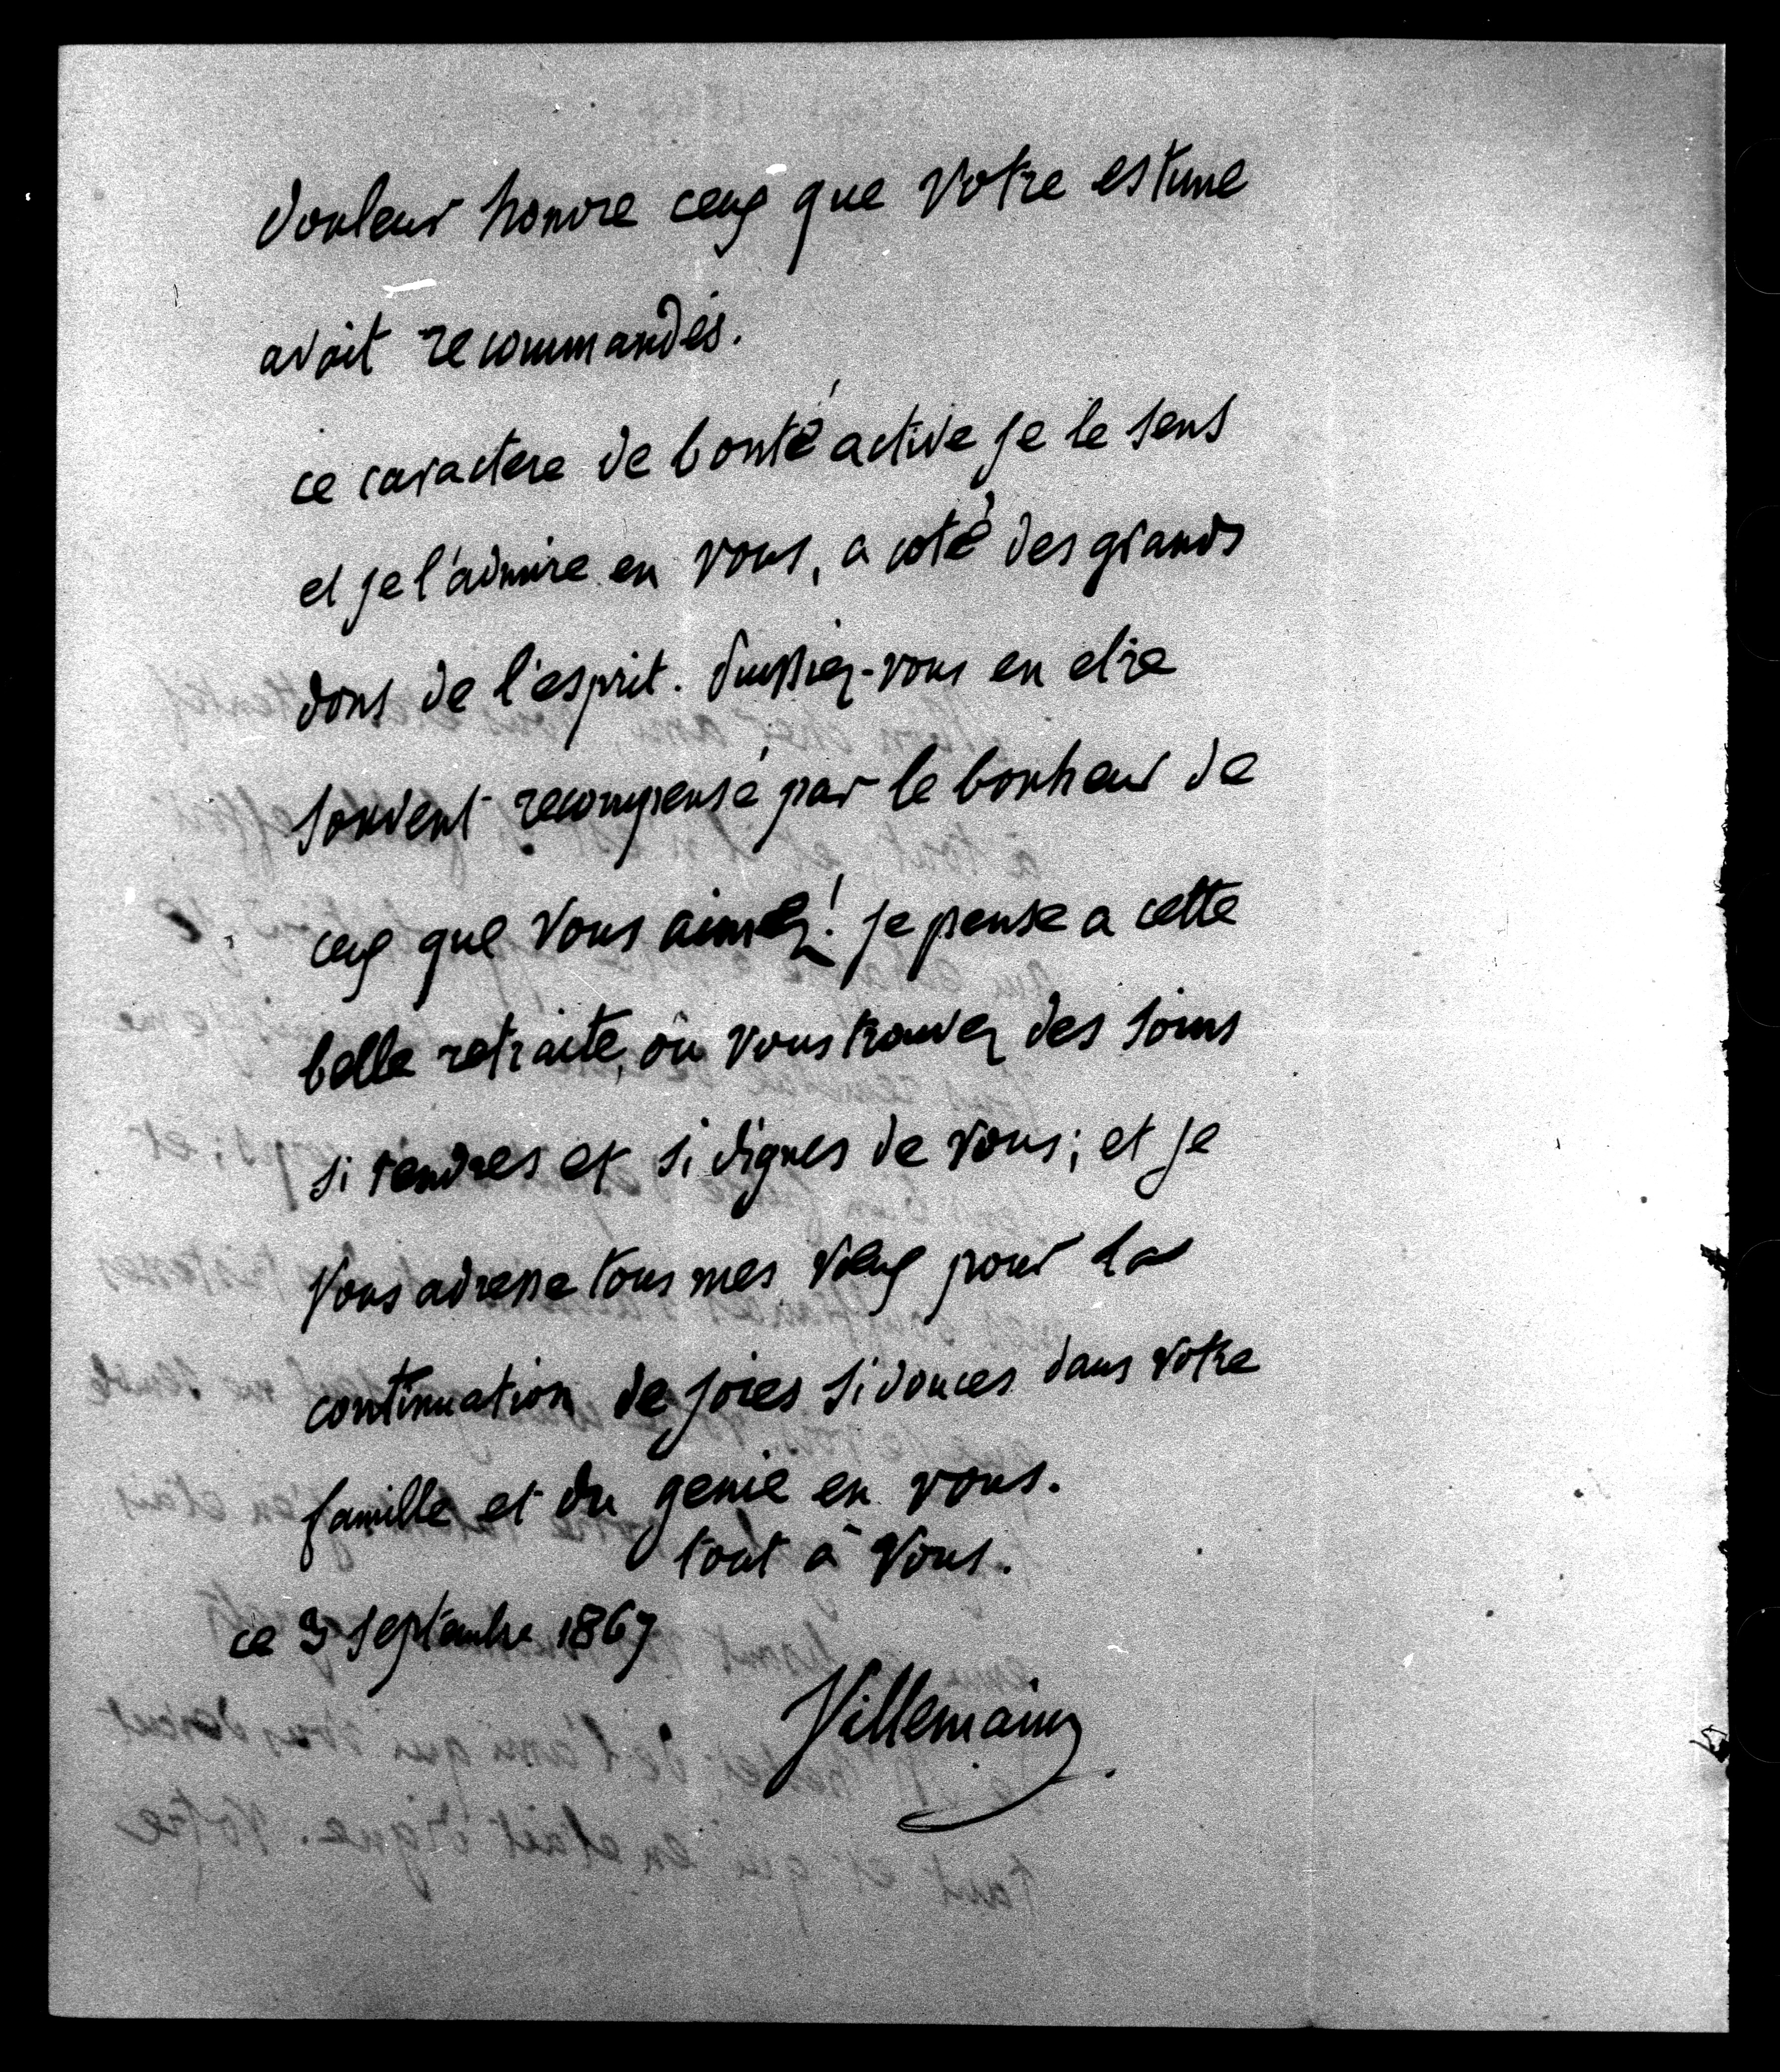 douleur honore ceux que votre estime
avait recommandés.
ce caractere de bonté active je le sens
et je l'admire en vous, a coté des grands
dons de l'esprit. Puissiez-vous en etre
souvent recompensé par le bonheur de
ceux que vous aimez! je pense a cette
belle retraite, où vous trouvez des soins
si tendres et si dignes de vous; et je
vous adresse tous mes vœux pour la
continuation de joies si douces dans votre
famille et du genie en vous.
tout à vous.
ce 3 septembre 1867
Villemain